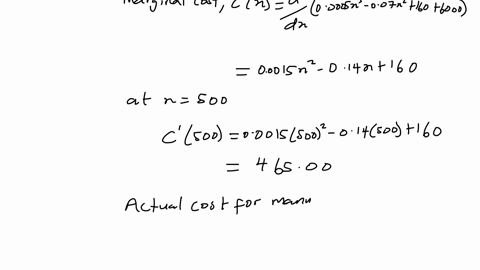 Marginal cost, C'(x) = d/dx (0.0005x³-0.07x²+160+6000)
= 0.0015x² - 0.14x + 160
at x = 500
C'(500) = 0.0015(500)² - 0.14(500) + 160
= 465.00
Actual cost for manu